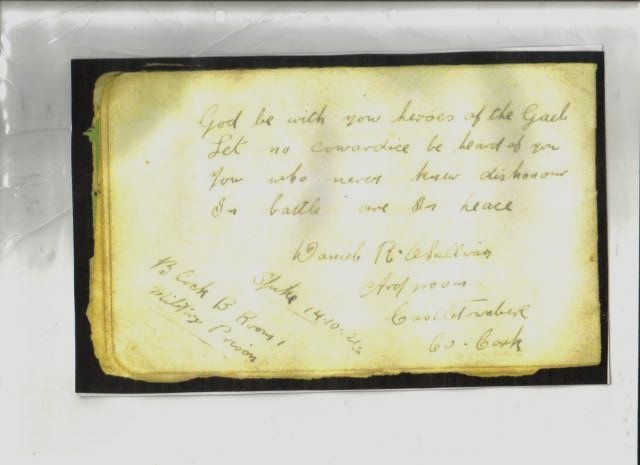 God be with you heroes of the Gael
Let no cowardice be heard of you
You who never knew dishonour
In battle are In peace
Daniel R. O'Sullivan
Ardgroom
Castletownbere
Co. Cork
B Lock B Room,
Military Prison
14.10.